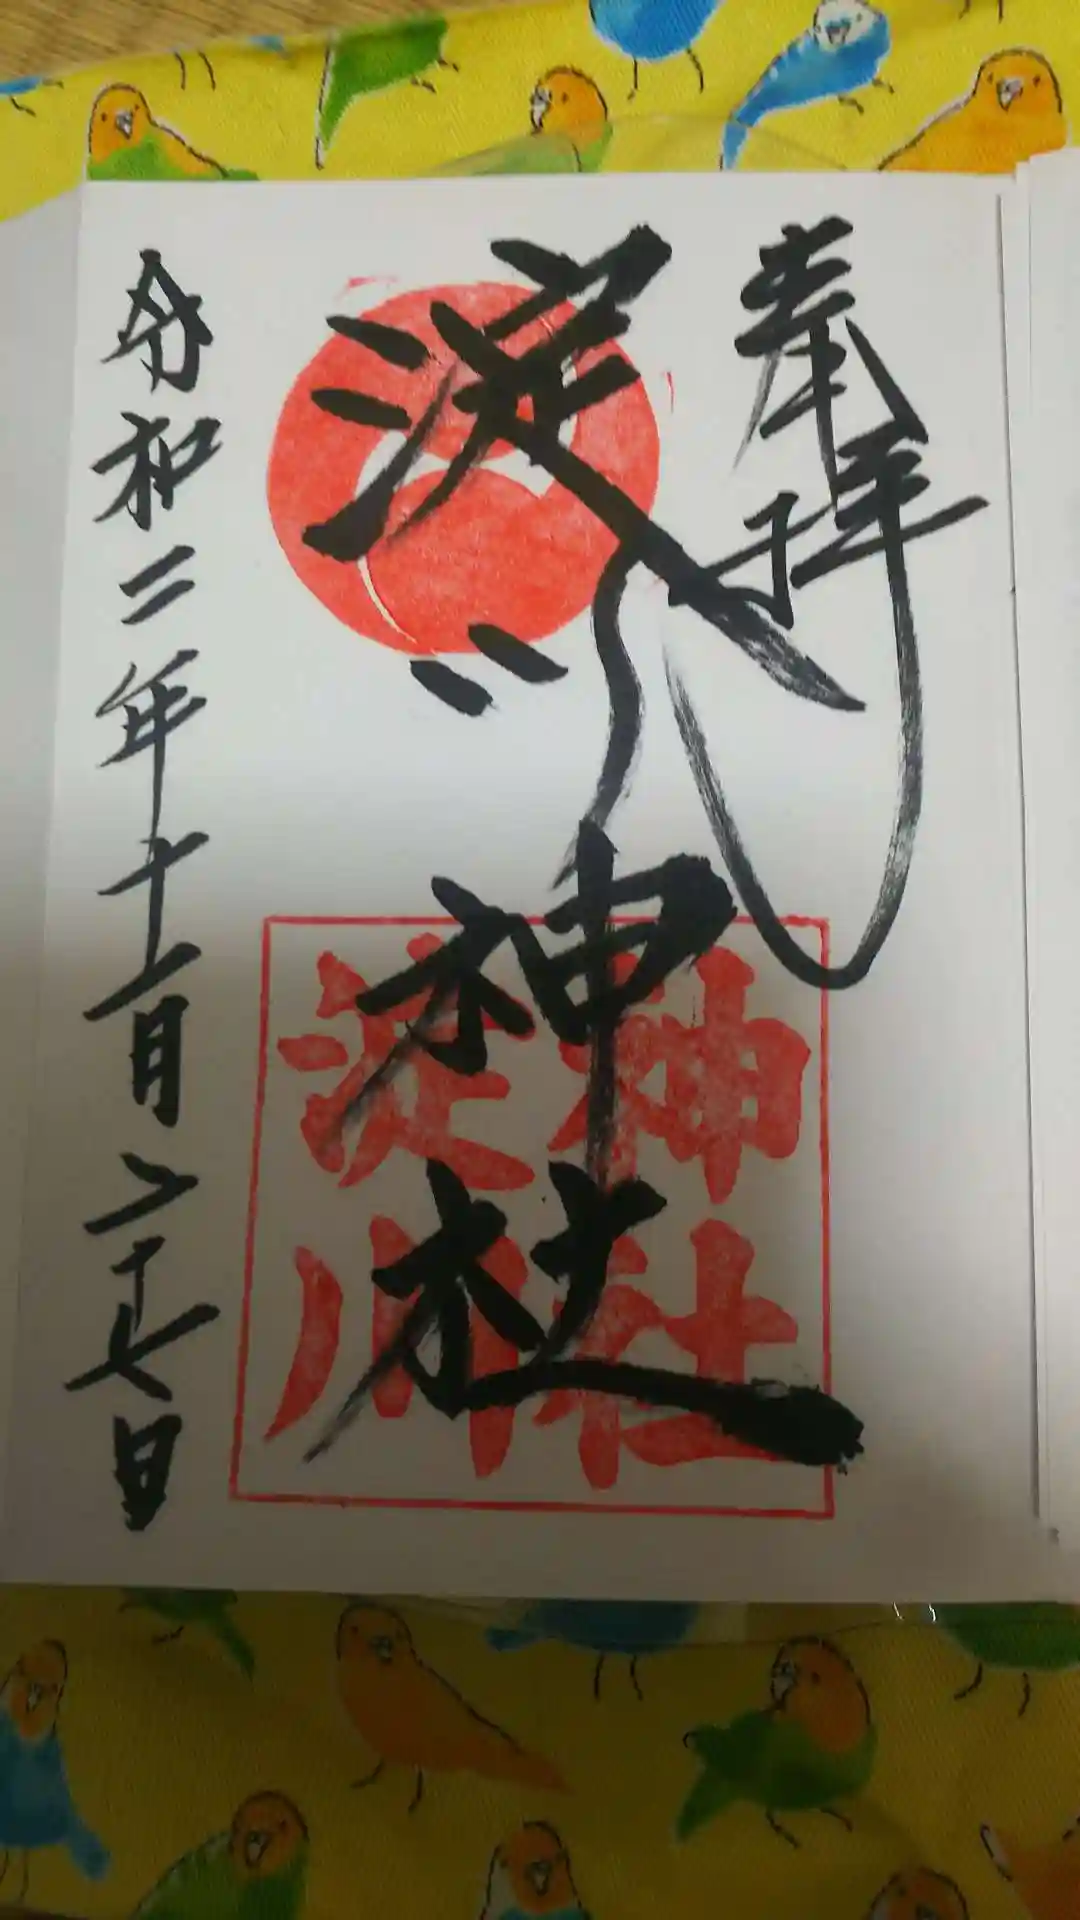 奉拝
淀川神社
淀川
神社
令和二年十一月二十七日